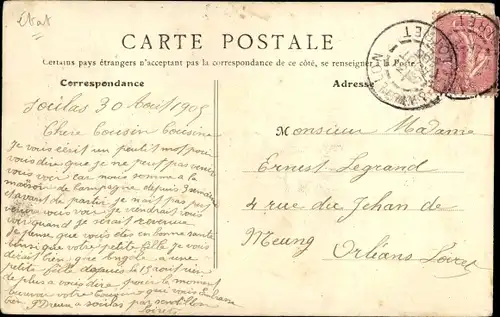 Etat
CARTE POSTALE
Certains pays étrangers n'acceptant pas la correspondance de ce côté, se renseigner à la Poste
Correspondance
Adresse
30 Août 1905
Chère Cousin Cousine
je vous écrit un peutit mot pour
vous dire que je ne peut pas venir
vous voir car nous somme a la
maison de Campagne depuis 3
avant de partir je n'ait pas
vous voir je viendrait vous
voir quand je serait revenue
je pense que vous etes en bonne santé
ainsi que votre petite fille je vous
dirait bien que a une
petite fille depuis le 15 aout rien
de plus a vous dire pour le moment
votre Cousine qui vous embrasse
bien par
Loiret
Monsieur Madame
Ernest Legrand
4 rue du Jehan de
Meung Orléans Loiret